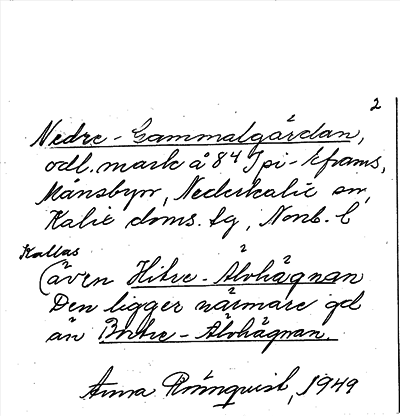 2
Nedre-Gammalgårdan,
odl. mark å 8⁴ Spi-Kframs,
Månsbyn, Nederkalix sn,
Kalix doms. tg, Norrb. l
Kallas
(även Hitre-Älvhågnan
Den ligger närmare gd
än Bortre-Älvhågnan.
Anna Rönnqvist, 1949